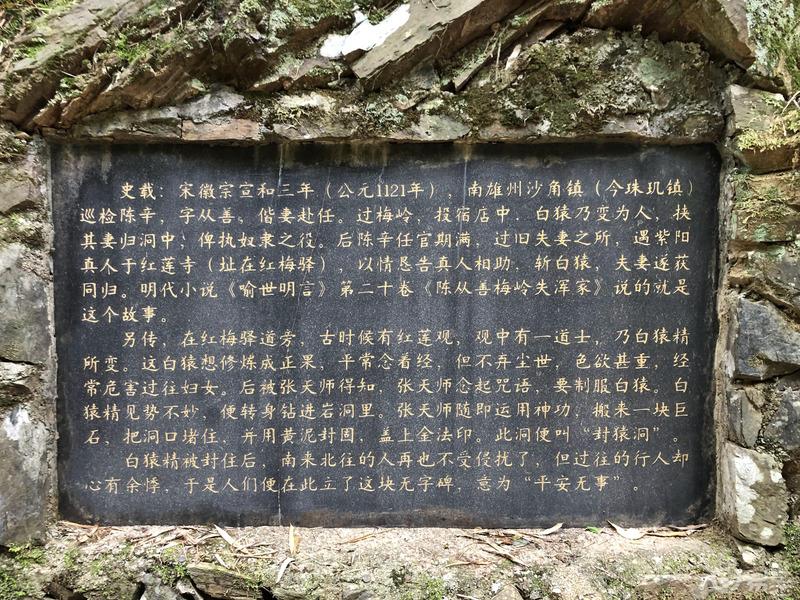 史载：宋徽宗宣和三年（公元1121年），南雄州沙角镇（今珠玑镇）
巡检陈辛，字从善。偕妻赴任。过梅岭，投宿店中，白猿乃变为人，挟
其妻归洞中，俾执奴隶之役。后陈辛任官期满，过旧失妻之所，遇紫阳
真人于红莲寺（址在红梅驿），以情恳告真人相助，斩白猿，夫妻遂获
同归。明代小说《喻世明言》第二十卷《陈从善梅岭失浑家》说的就是
这个故事。
另传，在红梅驿道旁，古时候有红莲观，观中有一道士，乃白猿精
所变。这白猿想修炼成正果，平常念着经，但不弃尘世，色欲甚重，经
常危害过往妇女。后被张天师得知，张天师念起咒语，要制服白猿。白
猿精见势不妙，便转身钻进岩洞里。张天师随即运用神功，搬来一块巨
石，把洞口堵住，并用黄泥封固，盖上金法印。此洞便叫“封猿洞”。
白猿精被封住后，南来北往的人再也不受侵扰了，但过往的行人却
心有余悸，于是人们便在此立了这块无字碑，意为“平安无事”。